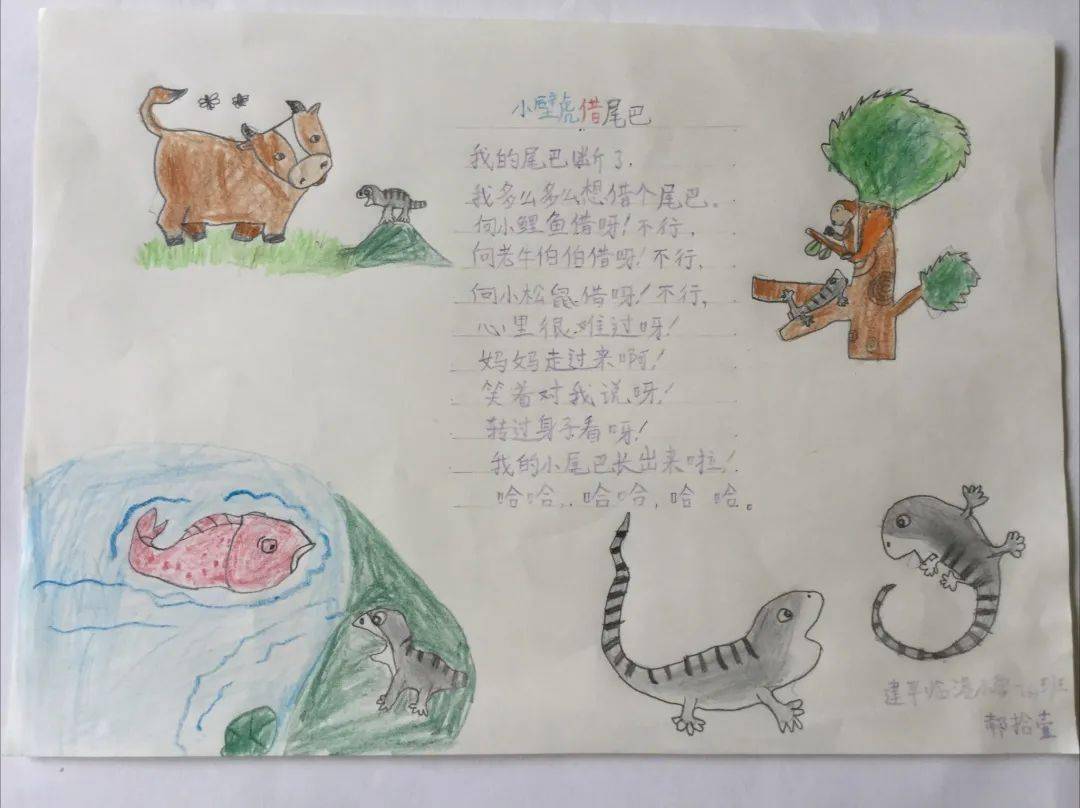 小壁虎借尾巴
我的尾巴断了,
我多么多么想借个尾巴。
向小鲤鱼借呀!不行,
向老牛伯伯借呀!不行,
向小松鼠借呀!不行,
心里很难过呀!
妈妈走过来啊!
笑着对我说呀!
转过身子看呀!
我的小尾巴长出来啦!
哈哈,哈哈,哈哈。
建平临港小学班
郝拾壹